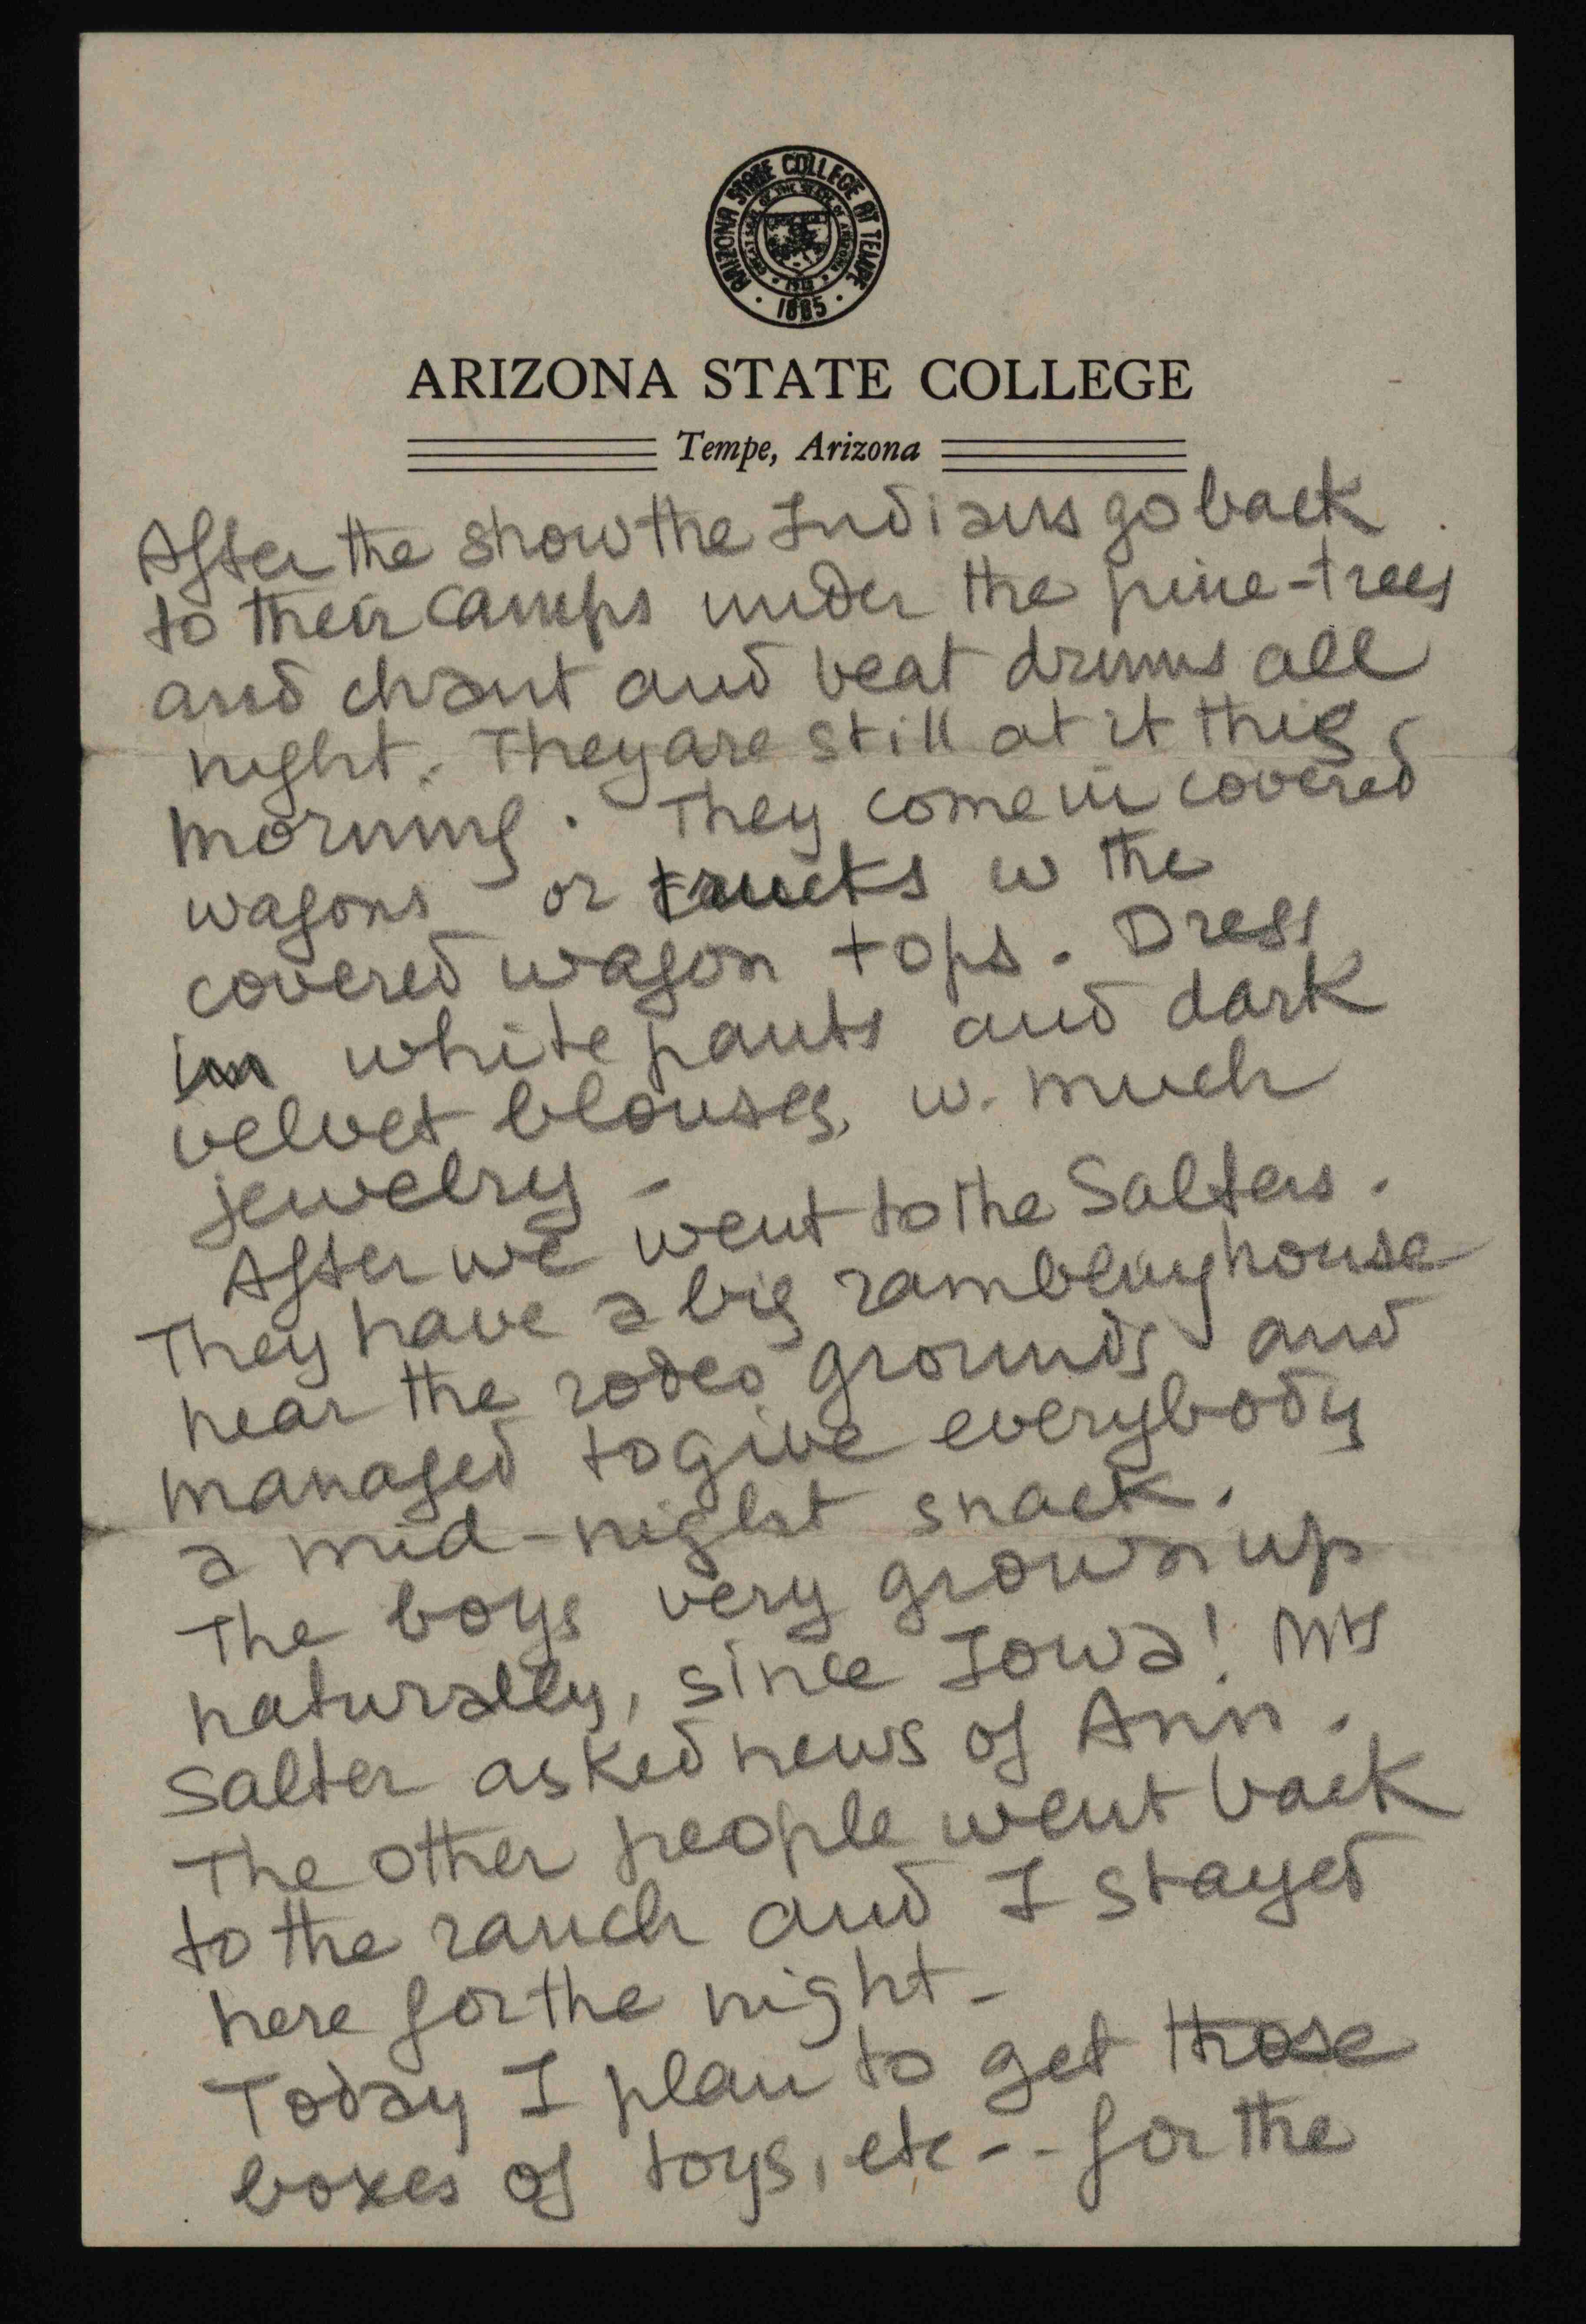 ARIZONA STATE COLLEGE AT TEMPE
GREAT SEAL OF THE STATE OF ARIZONA
1912
1885
ARIZONA STATE COLLEGE
Tempe, Arizona
After the show the Indians go back
to their camps under the pine-trees
and chant and beat drums all
night. They are still at it this
morning. They come in covered
wagons or trucks w the
covered wagon tops. Dress
in white pants and dark
velvet blouses, w. much
jewelry -
After we went to the Salters.
They have a big rambling house
near the rodeo grounds and
managed to give everybody
a mid-night snack.
The boys very grown up
naturally, since Iowa! Mrs
Salter asked news of Ann.
The other people went back
to the ranch and I stayed
here for the night -
Today I plan to get those
boxes of toys, etc -- for the